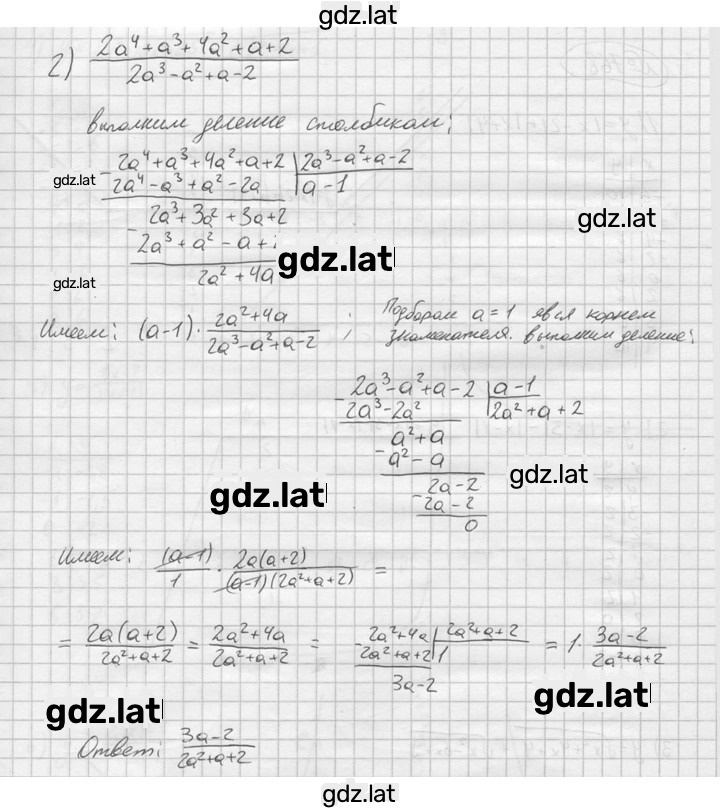 gdz.lat
2) (2a⁴+a³+4a²+a+2)/(2a³-a²+a-2)
выполним деление столбиком;
-2a⁴+a³+4a²+a+2 | 2a³-a²+a-2
gdz.lat
2a⁴-a³+a²-2a | a-1
gdz.lat
2a³+3a²+3a+2
-2a³+a²-a+
gdz.lat
gdz.lat
2a²+4a
Имеем: (a-1)·(2a²+4a)/(2a³-a²+a-2) ;
Подбором a=1 явл корнем
знаменателя. выполним деление:
-2a³-a²+a-2 | a-1
2a³-2a² | 2a²+a+2
a²+a
-a²-a
2a-2
-2a-2
0
gdz.lat
gdz.lat
Имеем: (a-1)/1 · 2a(a+2)/((a-1)(2a²+a+2)) =
= 2a(a+2)/(2a²+a+2) = (2a²+4a)/(2a²+a+2) =
-2a²+4a | 2a²+a+2
2a²+a+2 | 1
3a-2
= 1· (3a-2)/(2a²+a+2)
gdz.lat
gdz.lat
Ответ: (3a-2)/(2a²+a+2)
gdz.lat